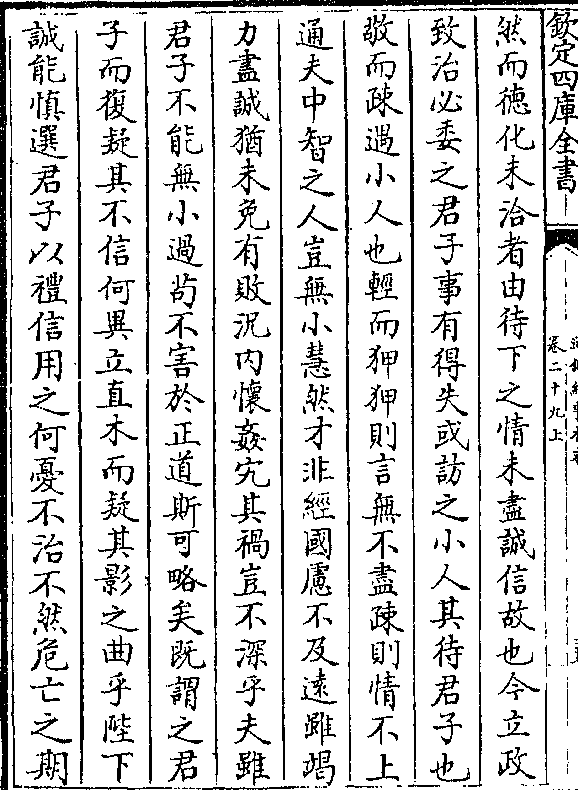 欽定四庫全書
卷二十九上
然而德化未洽者由待下之情未盡誠信故也今立政
致治必委之君子事有得失或訪之小人其待君子也
敬而疎遇小人也輕而狎狎則言無不盡疎則情不上
通夫中智之人豈無小慧然才非經國慮不及遠雖竭
力盡誠猶未免有敗況内懷姦宄其禍豈不深乎夫雖
君子不能無小過茍不害於正道斯可略矣既謂之君
子而復疑其不信何異立直木而疑其影之曲乎陛下
誠能慎選君子以禮信用之何憂不治不然危亡之期